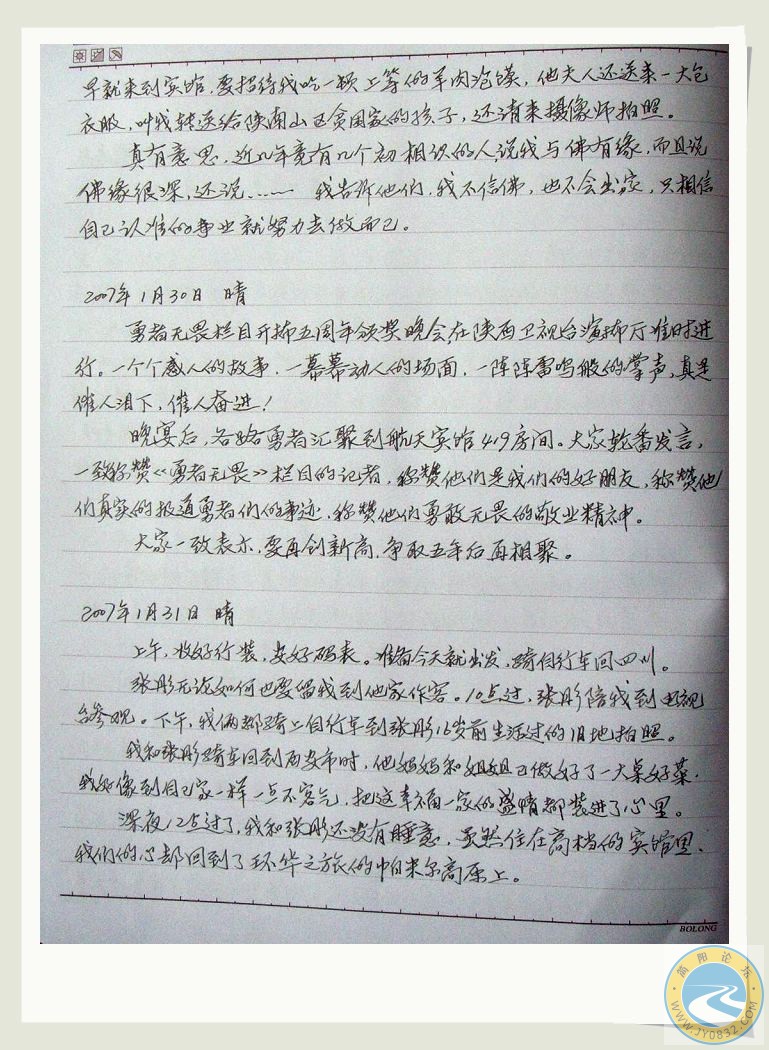 早就来到宾馆，要招待我吃一顿上等的羊肉泡馍，他夫人还送来一大包
衣服，叫我转送给陕南山区贫困家的孩子，还请来摄像师拍照。
真有意思，近几年竟有几个初相识的人说我与佛有缘，而且说
佛缘很深，还说……— 我告诉他们，我不信佛，也不会出家，只相信
自己认准的事业就努力去做而已。
2007年1月30日 晴
勇者无畏栏目开播五周年颁奖晚会，在陕西卫视台演播厅准时进
行。一个个感人的故事，一幕幕动人的场面，一阵阵雷鸣般的掌声，真是
催人泪下，催人奋进！
晚宴后，各路勇者汇聚到航天宾馆419房间。大家轮番发言，
一致称赞《勇者无畏》栏目的记者，称赞他们是我们的好朋友，称赞他
们真实的报道勇者们的事迹，称赞他们勇敢无畏的敬业精神。
大家一致表示，要再创新高，争取五年后再相聚。
2007年1月31日 晴
上午，收好行装，安好码表。准备今天就出发，骑自行车回四川。
张彤无论如何也要留我到他家作客。10点过，张彤陪我到电视
台参观。下午，我俩都骑上自行车到张彤16岁前生活过的旧地拍照。
我和张彤骑车回到西安市时，他妈妈和姐姐已做好了一大桌好菜，
我好像到自己家一样一点不客气，把这幸福一家的盛情都装进了心里。
深夜12点过了，我和张彤还没有睡意，虽然住在高档的宾馆里，
我们的心却回到了环华之旅的帕米尔高原上。
BOLONG
简阳论坛
WWW.JY0832.COM